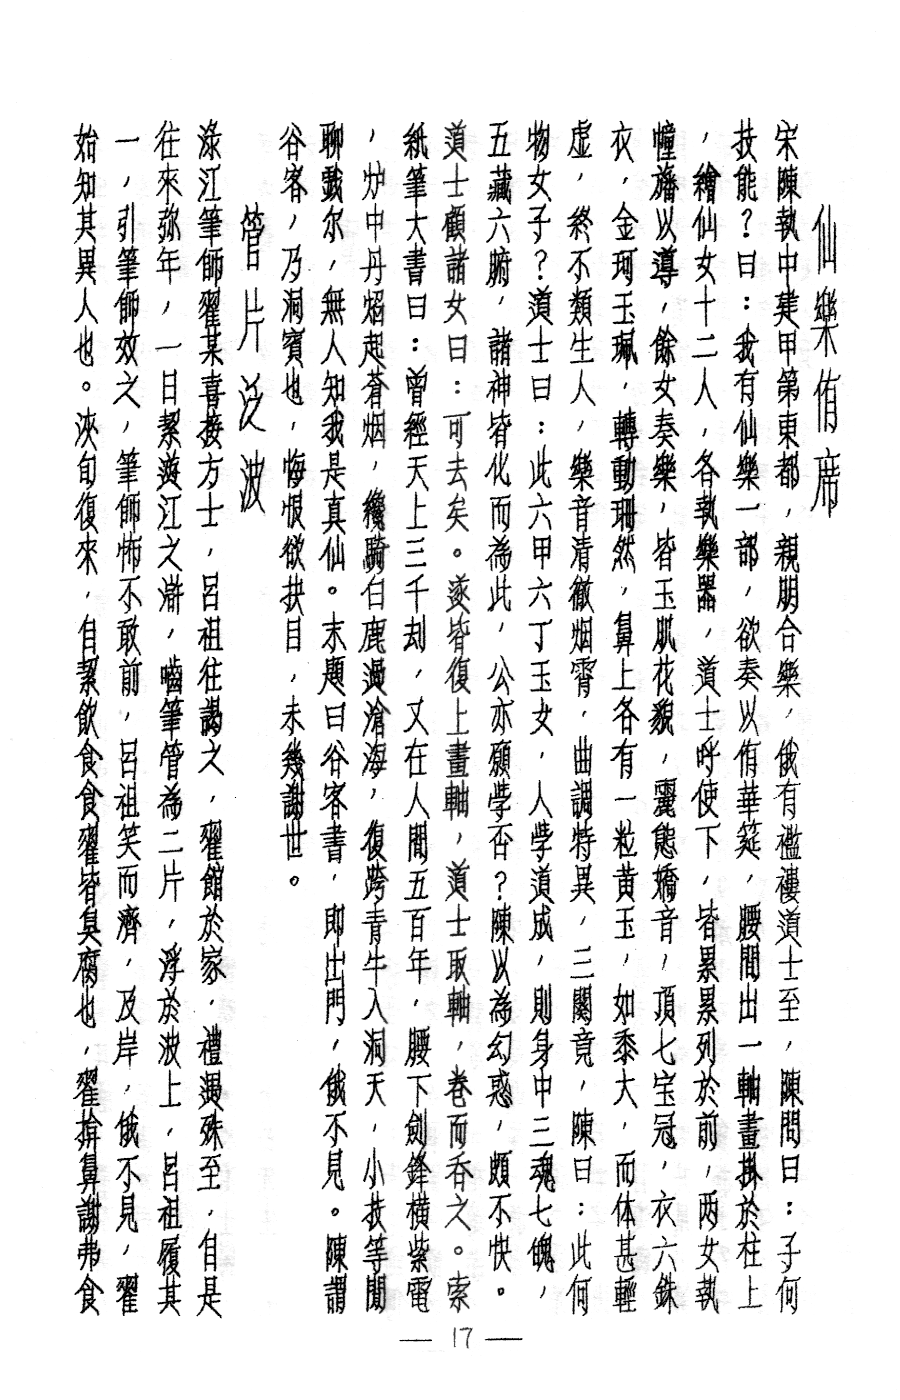 仙樂侑席
宋陳執中建甲第東都，親朋合樂，俄有襤褸道士至，陳問曰：子何
技能？曰：我有仙樂一部，欲奏以侑華筵，腰間出一軸畫掛於柱上
，繪仙女十二人，各執樂器，道士呼使下，皆累累列於前，两女執
幢旛以導，餘女奏樂，皆玉肌花貌，麗態嬌音，頂七宝冠，衣六銖
衣，金珂玉珮，轉動珊然，鼻上各有一粒黄玉，如黍大，而体甚輕
虚，終不類生人，樂音清徹烟霄，曲調特異，三闋竟，陳曰：此何
物女子？道士曰：此六甲六丁玉女，人學道成，則身中三魂七魄，
五藏六腑，諸神皆化而為此，公亦願學否？陳以為幻惑，頗不快。
道士顧諸女曰：可去矣。遂皆復上畫軸，道士取軸，卷而吞之。索
紙筆大書曰：曾經天上三千刼，又在人間五百年，腰下劍鋒橫紫電
，炉中丹焰起蒼烟，纔騎白鹿過滄海，復跨青牛入洞天，小技等閒
聊戲尔，無人知我是真仙。末題曰谷客書，即出門，俄不見。陳謂
谷客，乃洞賓也，悔恨欲抉目，未幾謝世。
管片泛波
淥江筆師翟某喜接方士，呂祖往謁之，翟館於家，禮遇殊至，自是
往來弥年，一日絜遊江之滸，嚙筆管為二片，浮於波上，呂祖履其
一，引筆師效之，筆師怖不敢前，呂祖笑而濟，及岸，俄不見，翟
始知其異人也。浹旬復來，自絜飲食食翟皆臭腐也，翟揜鼻謝弗食
— 17 —